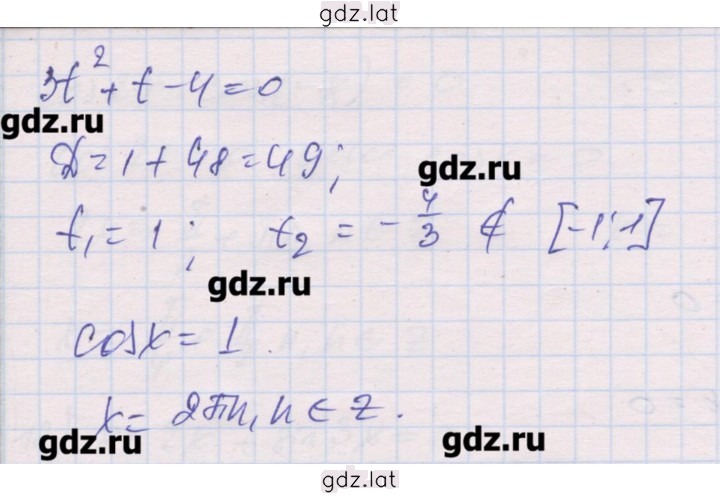 gdz.lat
3t² + t - 4 = 0
gdz.ru
D = 1 + 48 = 49;
gdz.ru
t₁ = 1; t₂ = - 4/3 ∉ [-1; 1]
gdz.ru
cosx = 1.
x = 2πn, n ∈ Z.
gdz.ru gdz.ru
gdz.lat